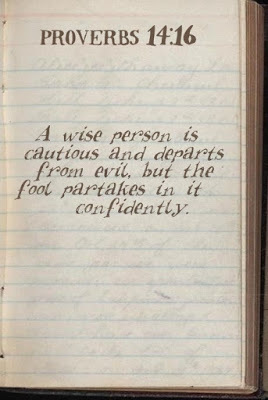 PROVERBS 14:16
A wise person is
cautious and departs
from evil, but the
fool partakes in it
confidently.